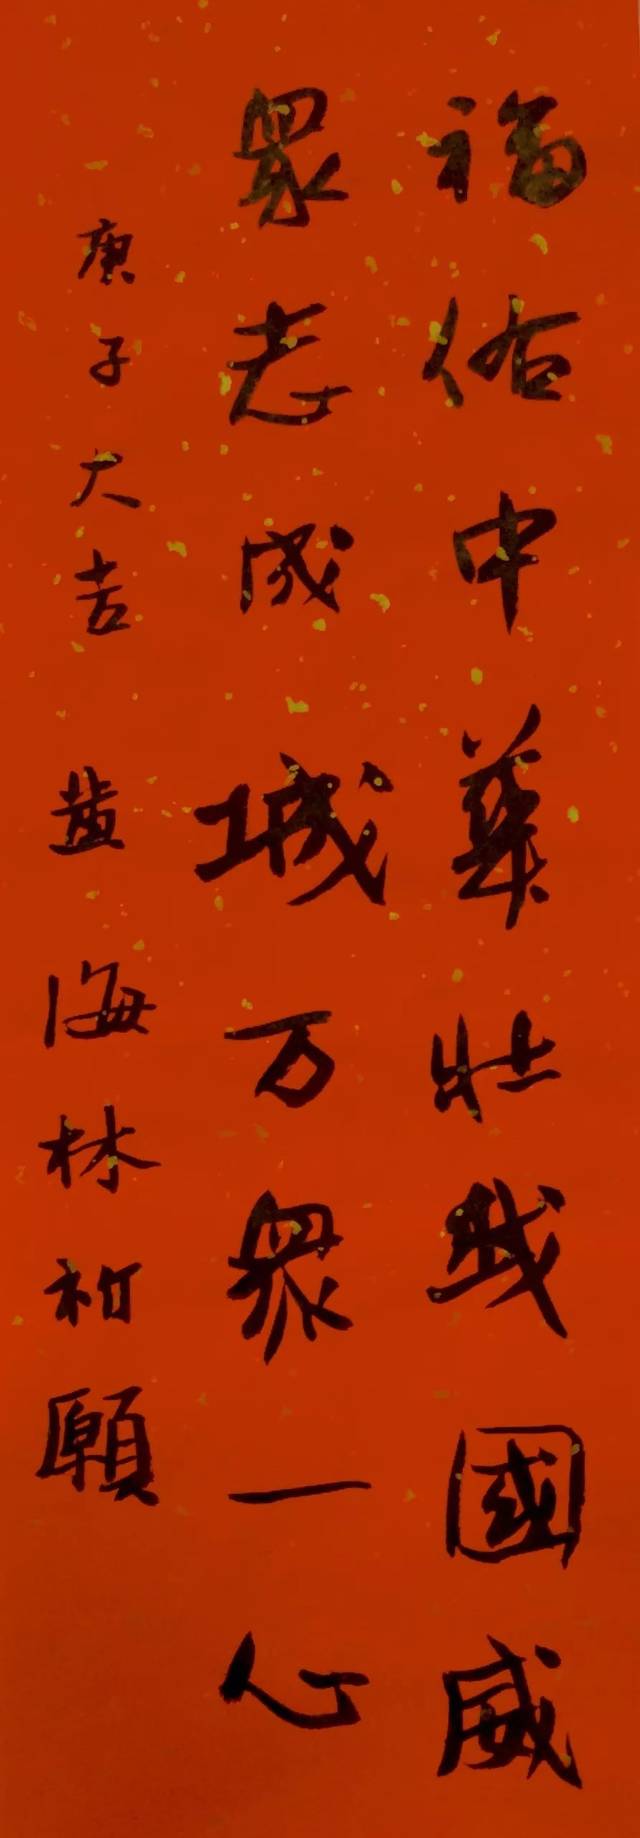 福佑中華壯我國威
眾志成城万眾一心
庚子大吉 黄海林祈願